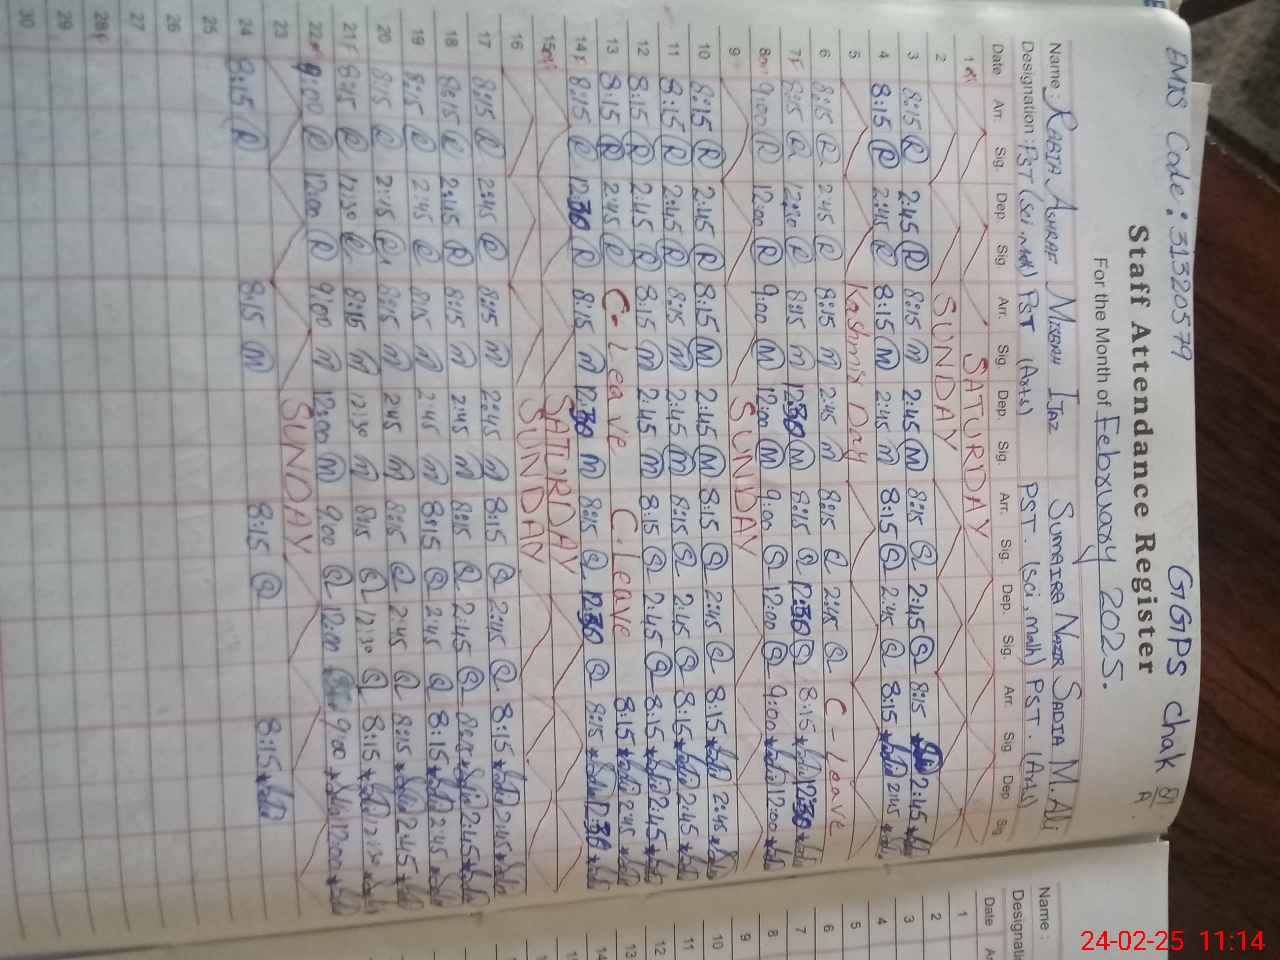 EMIS Code: 31320579 GGPS Chak 81/A
Staff Attendance Register
For the Month of February 2025.
Name: RABIA ASHRAF MIRAAH IJAZ SUMAIRA NAZIR SADIA M. Ali
Designation: PST (Sci, Math) PST (Arts) PST. (Sci, math) PST. (Arts)
Date Arr. Sig. Dep. Sig. Arr. Sig. Dep. Sig. Arr. Sig. Dep. Sig. Arr. Sig Dep Sig
1 SATURDAY
2 SUNDAY
3 8:15 R 2:45 R 8:15 M 2:45 M 8:15 S 2:45 S 8:15 2:45
4 8:15 R 2:45 R 8:15 M 2:45 M 8:15 S 2:45 S 8:15 2:45
5 Kashmir Day
6 8:15 R 2:45 R 8:15 M 2:45 M 8:15 S 2:45 S C-Leave
7 F 8:15 R 12:30 R 8:15 M 12:30 M 8:15 S 12:30 S 8:15 12:30
8 9:00 R 12:00 R 9:00 M 12:00 M 9:00 S 12:00 S 9:00 12:00
9 SUNDAY
10 8:15 R 2:45 R 8:15 M 2:45 M 8:15 S 2:45 S 8:15 2:45
11 8:15 R 2:45 R 8:15 M 2:45 M 8:15 S 2:45 S 8:15 2:45
12 8:15 R 2:45 R 8:15 M 2:45 M 8:15 S 2:45 S 8:15 2:45
13 8:15 R 2:45 R C-Leave C.Leave 8:15 2:45
14 F 8:15 R 12:30 R 8:15 M 12:30 M 8:15 S 12:30 S 8:15 12:30
15 SATURDAY
16 SUNDAY
17 8:15 R 2:45 R 8:15 M 2:45 M 8:15 S 2:45 S 8:15 2:45
18 8:15 R 2:45 R 8:15 M 2:45 M 8:15 S 2:45 S 8:15 2:45
19 8:15 R 2:45 R 8:15 M 2:45 M 8:15 S 2:45 S 8:15 2:45
20 8:15 R 2:45 R 8:15 M 2:45 M 8:15 S 2:45 S 8:15 2:45
21 F 8:15 R 12:30 R 8:15 M 12:30 M 8:15 S 12:30 S 8:15 12:30
22 9:00 R 12:00 R 9:00 M 12:00 M 9:00 S 12:00 9:00 12:00
23 SUNDAY
24 8:15 R 8:15 M 8:15 S 8:15
25
26
27
28
29
30
Name:
Designati
Date A
1
2
3
4
5
6
7
8
9
10
11
12
13
14
24-02-25 11:14